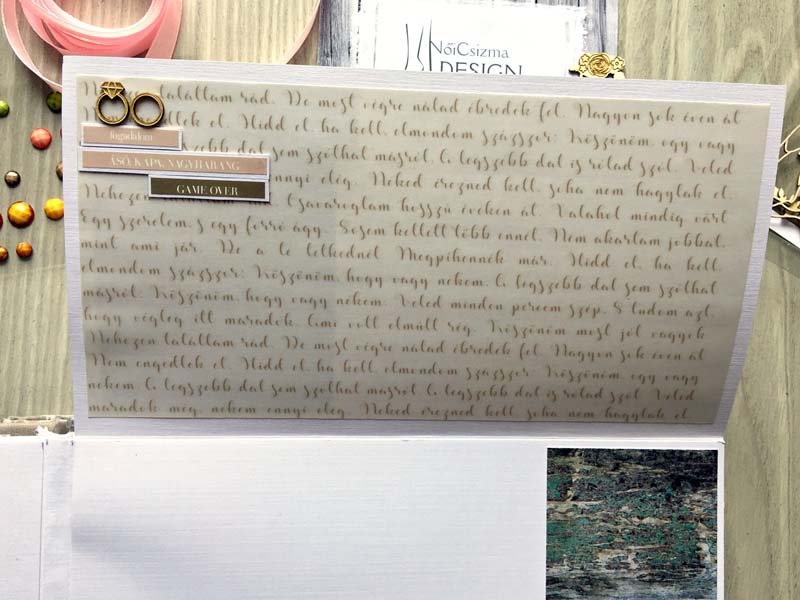 NőiCsizma
DESIGN
találtam rád. De most végre nálad ébredek fel. Nagyon sok éven át
el. Hidd el, ha kell, elmondom százszor: Köszönöm, ogy vagy
fogadalom
dal sem szólhat másról, A legszebb dal is rólad szól. Veled
ÁSÓ, KAPA, NAGYHARANG
nnyi elég. Neked érezned kell, soha nem hagylak el.
GAME OVER
Nehezen Csavarogtam hosszú éveken át. Valahol mindig várt
Egy szerelem, s egy forró ágy. Sosem kellett több ennél. Nem akartam jobbat,
mint ami jár. De a te lelkednél Megpihennék már. Hidd el, ha kell,
elmondom százszor: Köszönöm, hogy vagy nekem. A legszebb dal sem szólhat
másról. Köszönöm, hogy vagy nekem. Veled minden percem szép. S tudom azt,
hogy végleg itt maradok. Ami volt elmúlt rég. Köszönöm most jól vagyok
Nehezen találtam rád. De most végre nálad ébredek fel. Nagyon sok éven át
Nem engedlek el. Hidd el, ha kell, elmondom százszor: Köszönöm, ogy vagy
nekem. A legszebb dal sem szólhat másról. A legszebb dal is rólad szól. Veled
maradok még, nekem ennyi elég. Neked érezned kell, soha nem hagylak el.